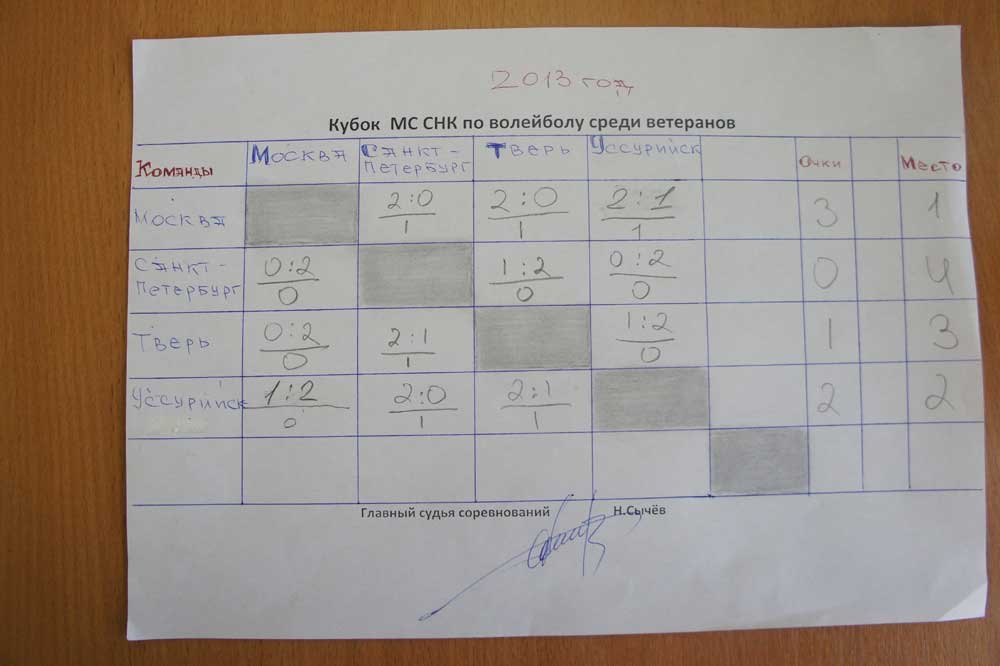 2013 год
Кубок МС СНК по волейболу среди ветеранов
Команды Москва Санкт-Петербург Тверь Уссурийск Очки Место
Москва 2:0 2:0 2:1 3 1
1 1 1
Санкт- 0:2 1:2 0:2 0 4
Петербург 0 0 0
Тверь 0:2 2:1 1:2 1 3
0 1 0
Уссурийск 1:2 2:0 2:1 2 2
0 1 1
Главный судья соревнований Н.Сычёв